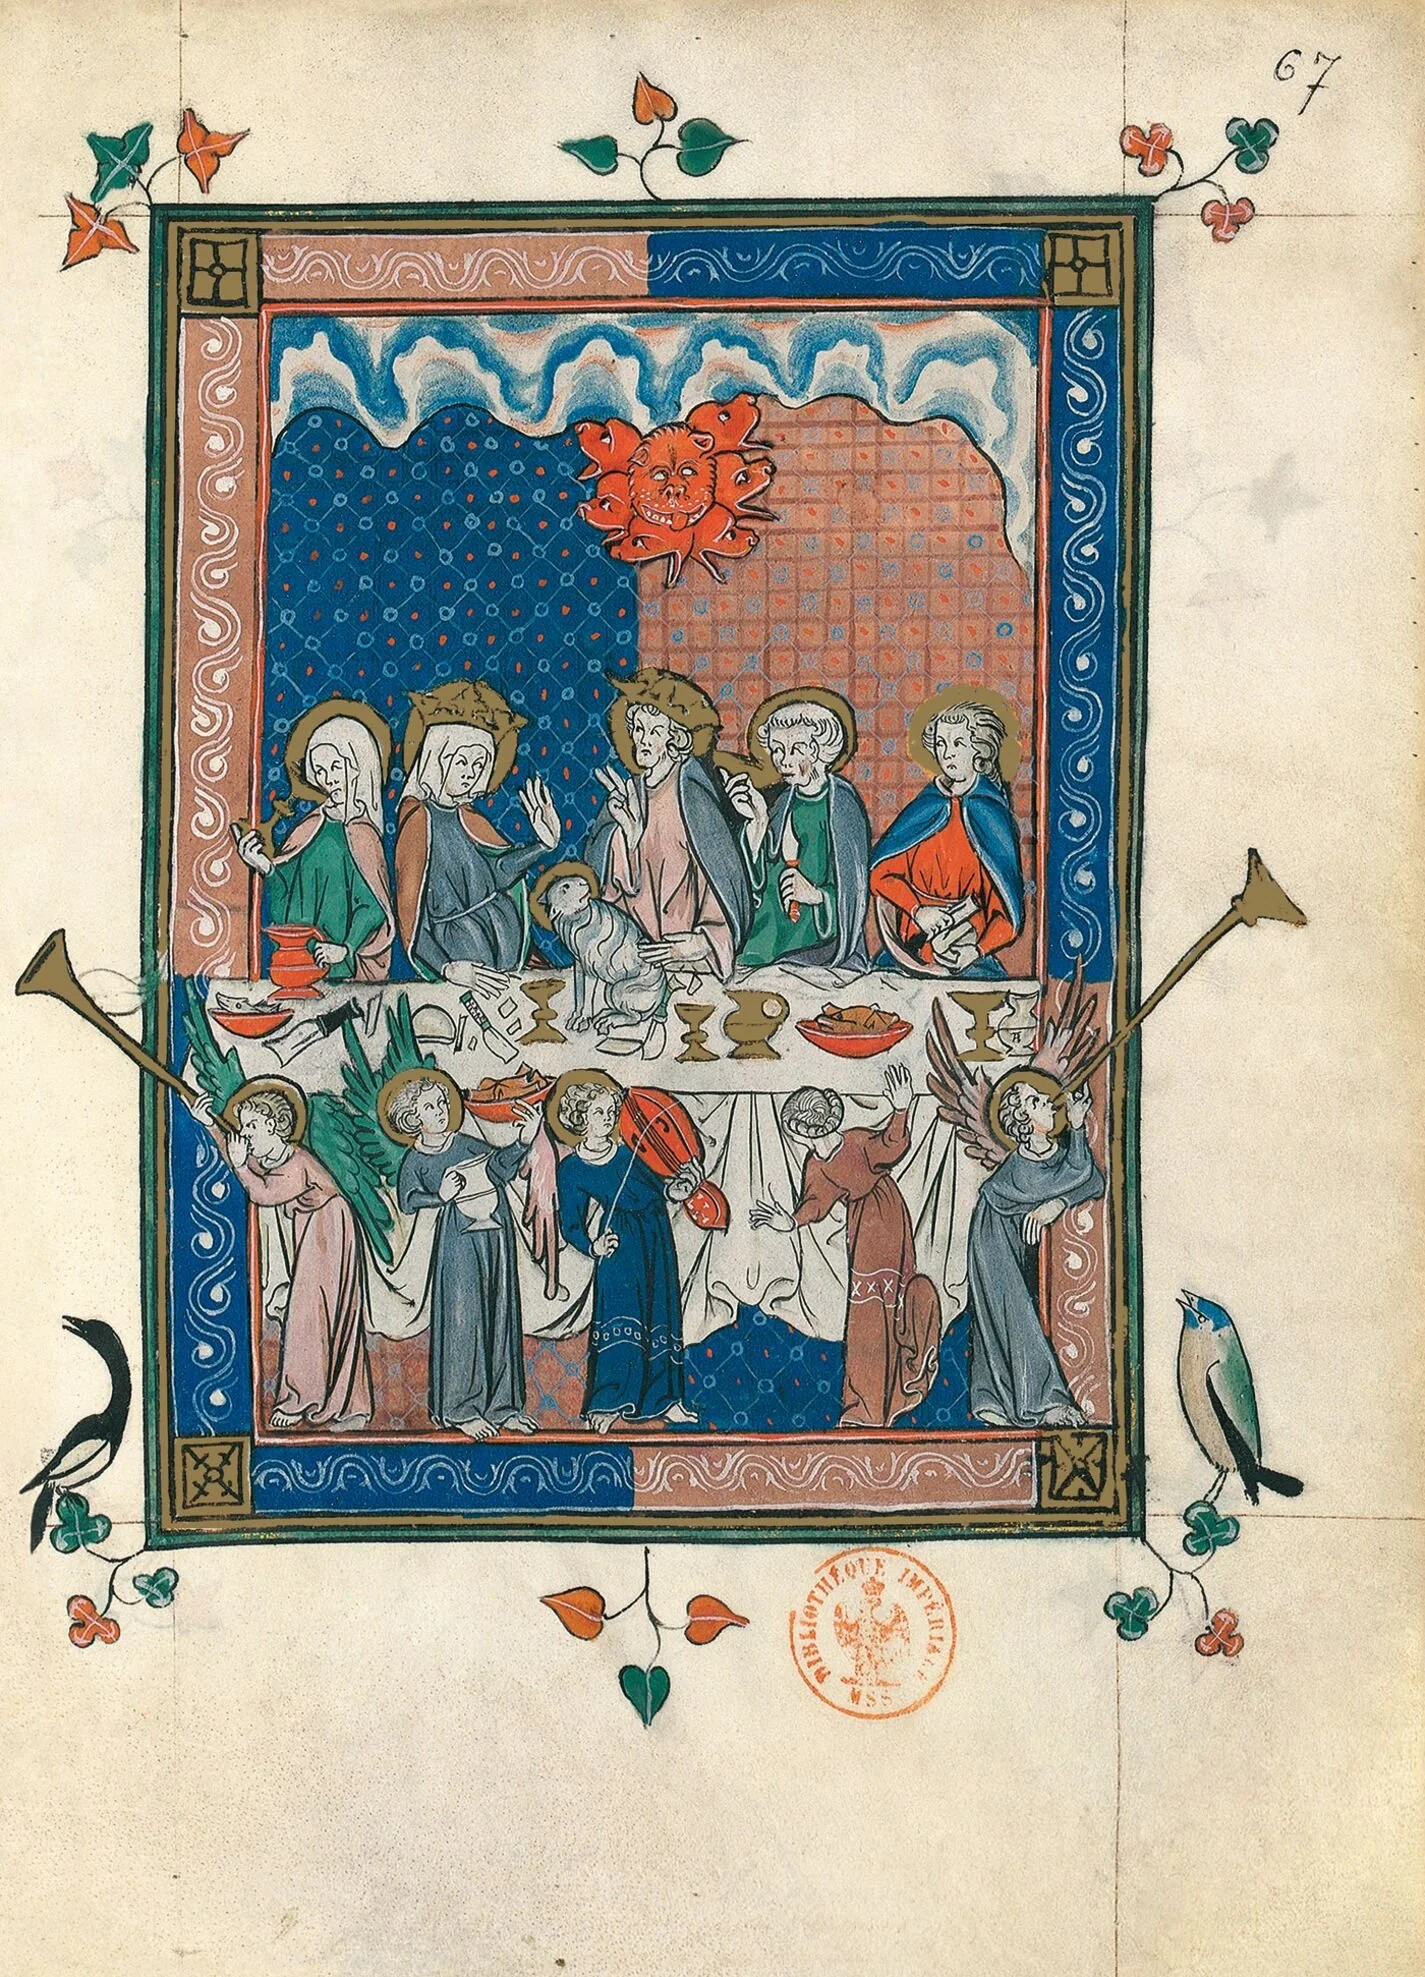 67
BIBLIOTHÈQUE IMPÉRIALE
MSS